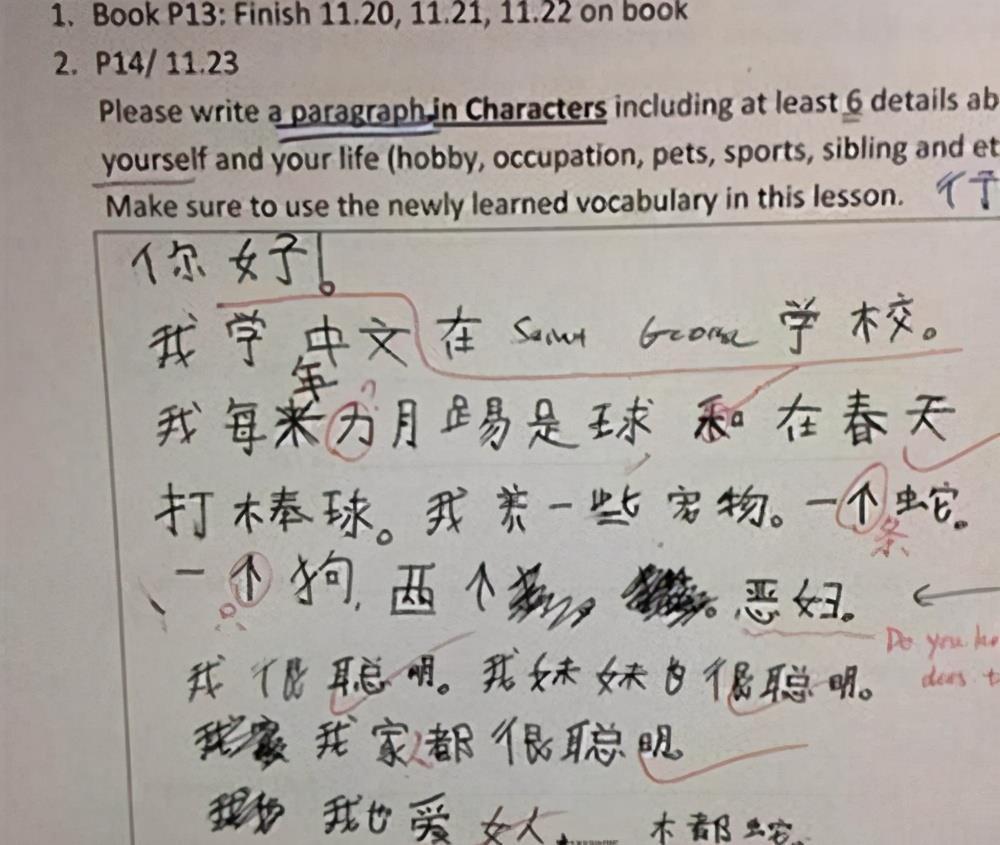 1. Book P13: Finish 11.20, 11.21, 11.22 on book
2. P14/ 11.23
Please write a paragraph in Characters including at least 6 details ab
yourself and your life (hobby, occupation, pets, sports, sibling and et
Make sure to use the newly learned vocabulary in this lesson.
你好!
我学中文在 学校。
年
我每 月踢 球和在春天
打棒球。我养一些宠物。一个蛇。
条
一个狗,两个 。恶妇。
Do you
does t
我很聪明。我妹妹 很聪明。
我家都很聪明
我也爱